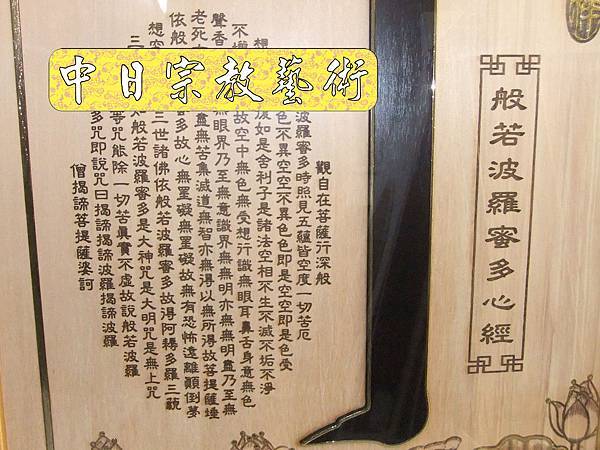 中日宗教藝術
般若波羅審多心經
觀自在菩薩行深般
波羅審多時照見五蘊皆空度一切苦厄
色不異空空不異色色即是空空即是色受
想 復如是舍利子是諸法空相不生不滅不垢不淨
不增 故空中無色無受想行識無眼耳鼻舌身意無色
聲香 無眼界乃至無意識界無無明亦無無明盡乃至無
老死 盡無苦集滅道無智亦無得以無所得故菩提薩埵
依般 多故心無罣礙無罣礙故無有恐怖遠離顛倒夢
想空 三世諸佛依般若波羅審多故得阿耨多羅三藐
三 知般若波羅審多是大神咒是大明咒是無上咒
等咒能除一切苦眞實不虛故說般若波羅
多咒即說咒曰揭諦揭諦波羅揭諦波羅
僧揭諦菩提薩婆訶